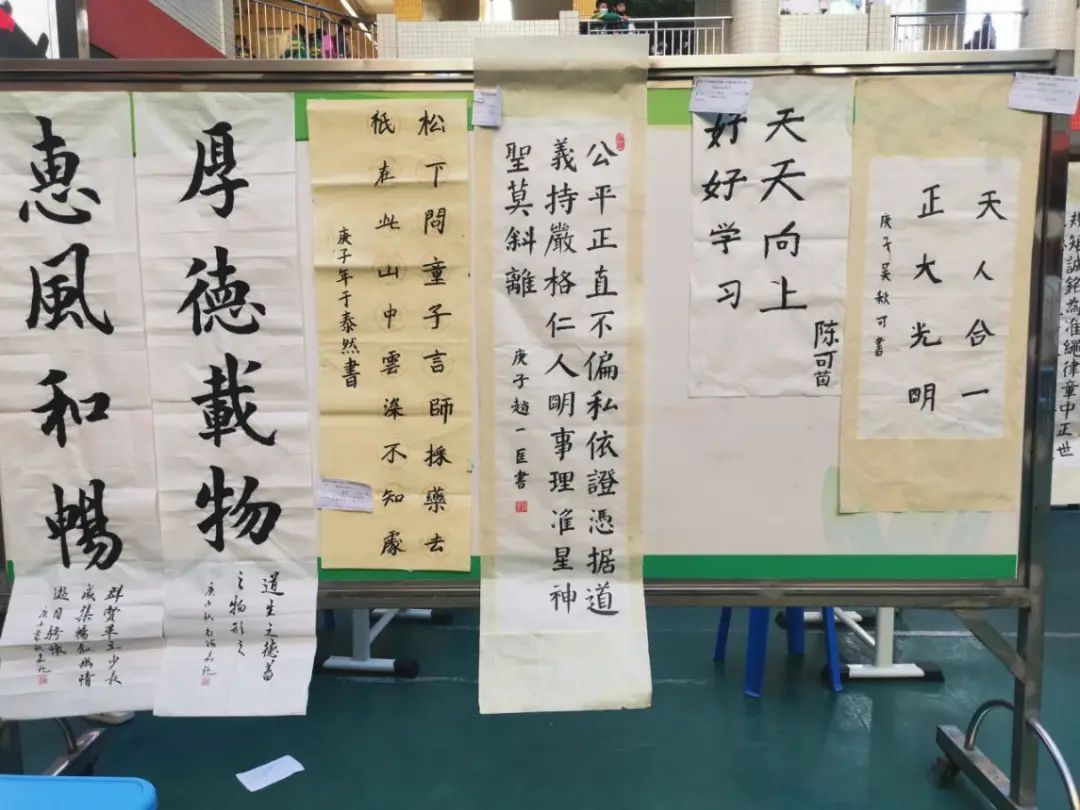 惠風和暢
群賢畢至少長
咸集暢敘幽情
遊目騁懷
厚德載物
道生之德畜
之物形之
松下問童子言師採藥去
柢在此山中雲深不知處
庚子年于泰然書
公平正直不偏私依證憑据道
義持嚴格仁人明事理准星神
聖莫斜離
庚子趙一臣書
天天向上
好好学习
陈可茵
天人合一
正大光明
庚子吴秋可書
誠銘為准繩律章中正世